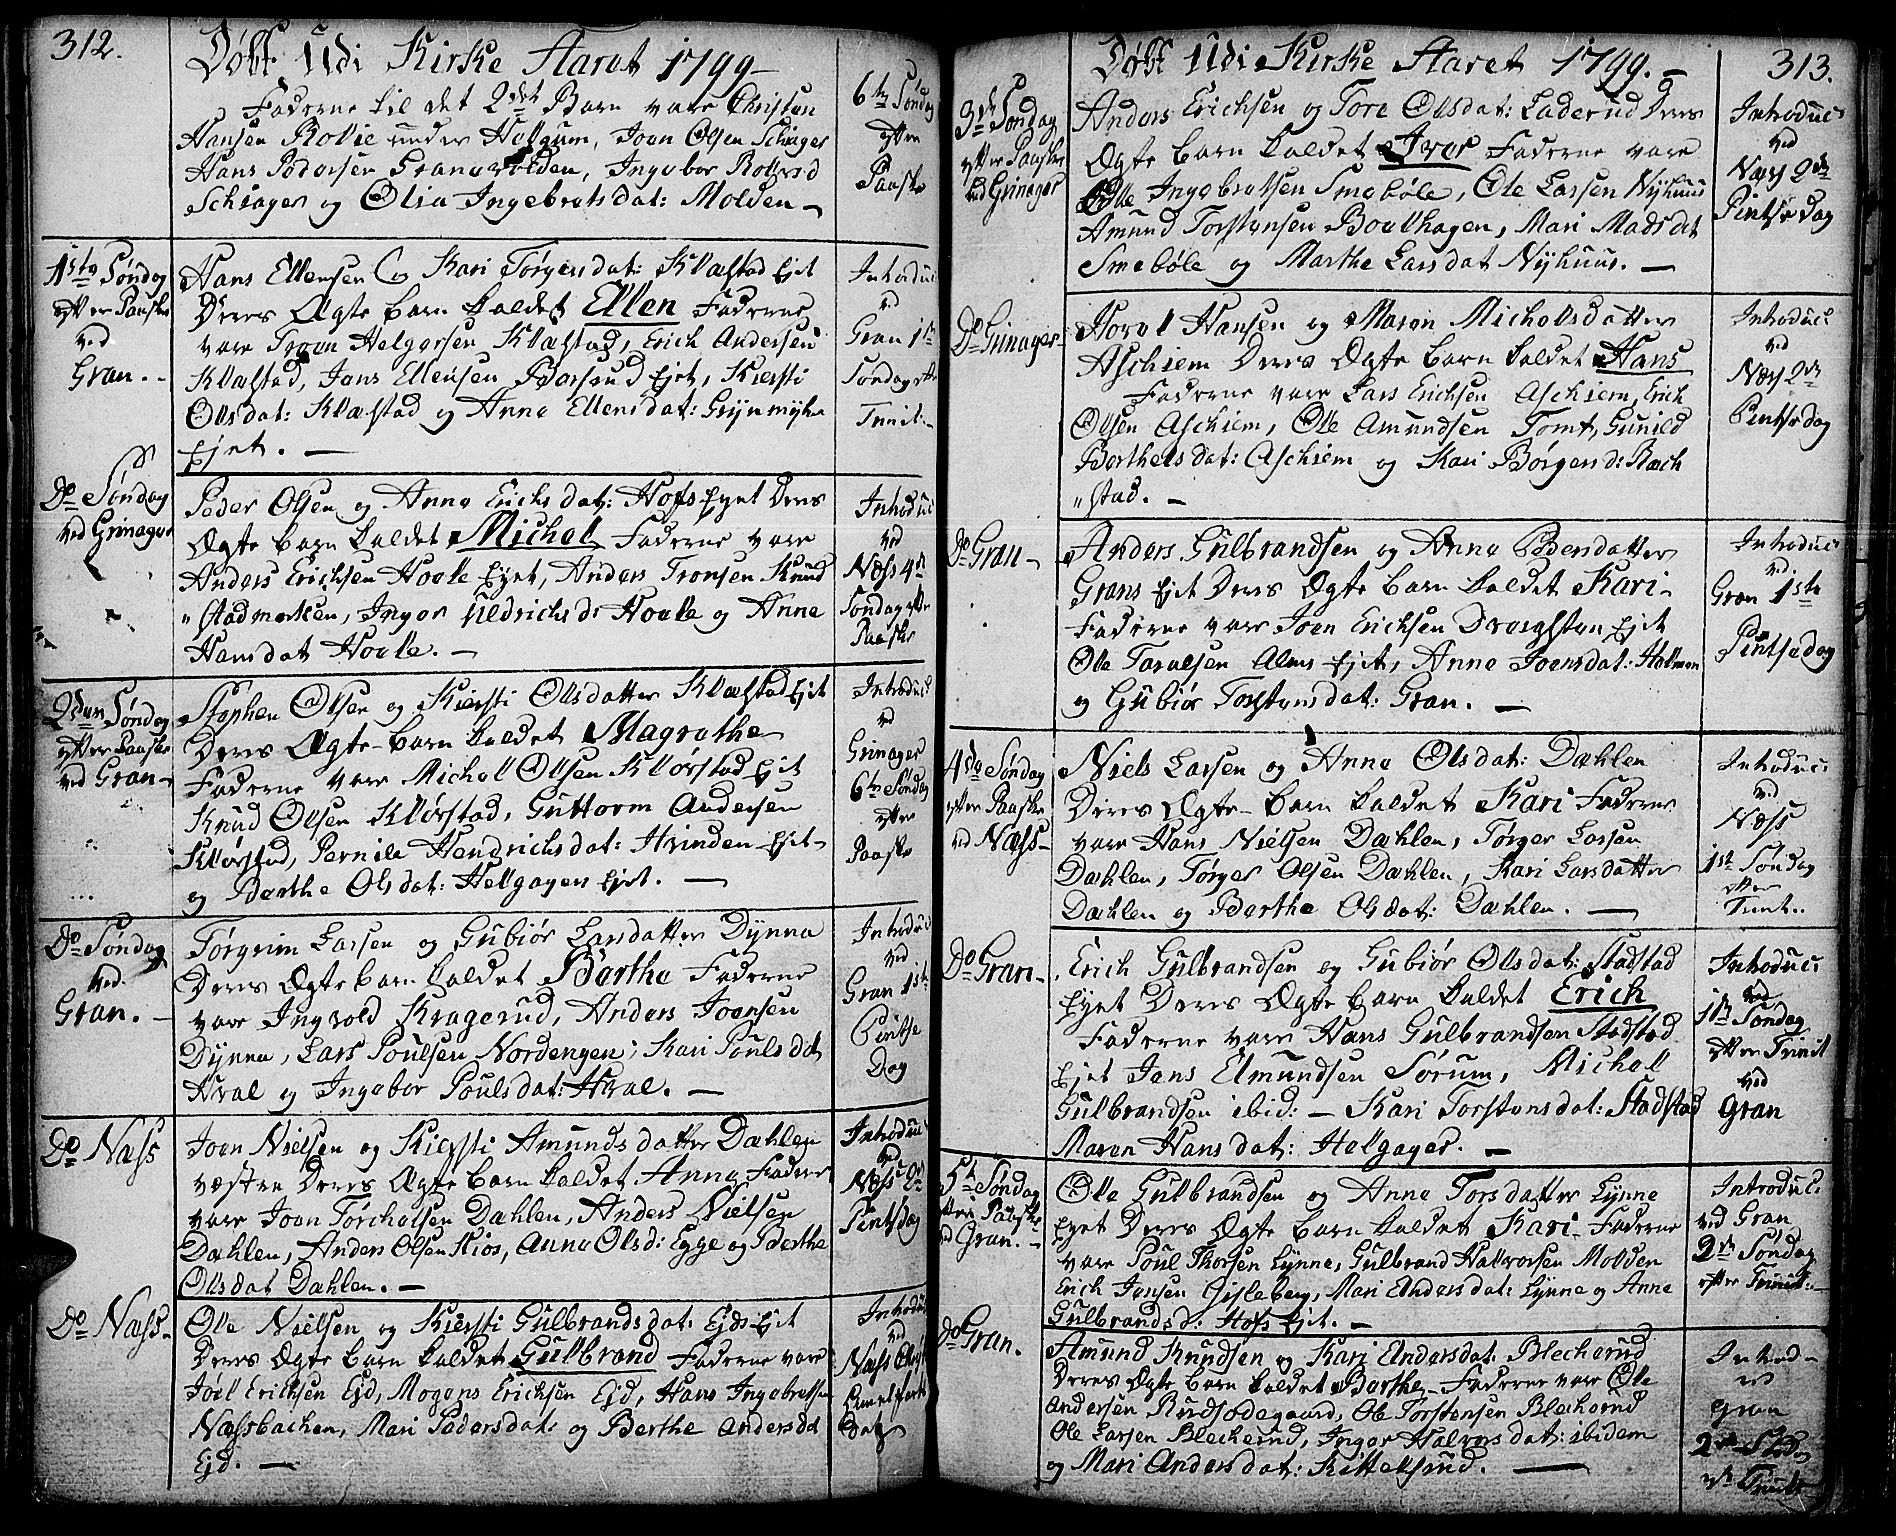 312.
Døbt Udi Kirke Aaret 1799
Faderne til det 2det Barn vare Christen
Hansen under Helgum, Joen Olsen Schiager
Hans Pedersen Granavolden, Ingebor
Schiager og Olia Ingebretsdat: Molden
6te Søndag
efter
Paaske
1ste Søndag
efter Paaske
ved
Gran.
Hans Ellensen og Kari Jørgensdat: Klæstad Ejet
Deres Ægte barn kaldet Ellen Faderne
vare Troen Helgersen Klæstad, Erich Andersen
Klæstad, Jens Ellensen Ejet, Kiersti
Olsdat: Klæstad og Anne Ellensdat: Grijnmyhr
Ejet.
Introduc:
ved
Gran 1ste
Søndag efter
Trinit:
Do Søndag
ved Grinager
Peder Olsen og Anne Erichsdat: Hofs Ejet Deres
Ægte barn kaldet Michel Faderne vare
Anders Erichsen Hoele Ejet, Anders Tronsen Knud
"stadmarken, Inger Uldrichsd: Hoele og Anne
Hansdat Hoele.
Introduc
ved
Næss 4de
Søndag efter
Paaske
2den Søndag
efter Paaske
ved Gran
Stephen Olsen og Kiersti Olsdatter Klæstad Ejet
Deres Ægte barn kaldet Magrethe
Faderne vare Michel Olsen Klørstad Ejet
Knud Olsen Klørstad, Guttorm Andersen
Klørstad, Pernile Hendrichsdat: Hvinden Ejet
og Berthe Olsdat: Hellgager Ejet.
Introduc:
ved
Grinager
6te Søndag
efter
Paaske
Do Søndag
ved
Gran.
Torgrim Larsen og Gubiør Larsdatter Dynna
Deres Ægte barn kaldet Berthe Faderne
vare Ingvold Kragerud, Anders Joensen
Dynna, Lars Poulsen Nordengen, Kari Poulsdat
Hval og Ingebor Poulsdat: Hval.
Introduc
ved
Gran 1ste
Pintse
Dag
Do Næss
Joen Nielsen og Kiersti Amundsdatter Dæhlen
væstre Deres Ægte barn kaldet Anne Faderne
vare Joen Torchelsen Dæhlen, Anders Nielsen
Dæhlen, Anders Olsen Kios, Anne Olsd: Egge og Berthe
Olsdat Dæhlen.
Introduc
ved
Næss 2den
Pintsdag
Do Næss
Ole Nielsen og Kiersti Gulbrandsdat: Ejds Ejet
Deres Ægte barn kaldet Gulbrand Faderne vare
Joel Erichsen Ejd, Mogens Erichsen Ejd, Hans Ingebretsen
Næssbachen, Mari Pedersdat: og Berthe Andersdat
Ejd.
Introduc
ved
Næss Christi
Himmelfarts
Dag
313.
Døbt Udi Kirke Aaret 1799.
3de Søndag
efter Paaske
ved Grinager
Anders Erichsen og Tore Olsdat: Laderud Deres
Ægte barn kaldet Iver Faderne vare
Ole Ingebretsen Smebøle, Ole Larsen Nyhuus
Amund Torstensen Boelhagen, Mari Madsdat
Smebøle og Marthe Larsdat Nyhuus.
Introduc:
ved
Næss 2den
Pintsedag
Do Grinager
Hovel Hansen og Maren Michelsdatter
Aschiem Deres Ægte barn kaldet Hans
Faderne vare Lars Erichsen Aschiem, Erich
Olsen Aschiem, Ole Amundsen Tomt, Gunild
Barthelsdat: Aschiem og Kari Børgersd: Ræch
"stad.
Introduc:
ved
Næss 2den
Pintsedag
Do Gran
Anders Gulbrandsen og Anne Pedersdatter
Grans Ejet Deres Ægte barn kaldet Kari
Faderne vare Joen Erichsen Ejet
Ole Alms Ejet, Anne Joensdat: Holmen
og Gubiør Torstensdat: Gran.
Introduc:
ved
Gran 1ste
Pintsedag
4de Søndag
efter Paaske
ved Næss
Niels Larsen og Anne Olsdat: Dæhlen
Deres Ægte barn kaldet Kari Faderne
vare Hans Nielsen Dæhlen, Tørger Larsen
Dæhlen, Tørger Olsen Dæhlen, Kari Larsdatter
Dæhlen og Berthe Olsdat: Dæhlen.
Introduc:
ved
Næss
1ste Søndag
efter
Trinit.
Do Gran
Erich Gulbrandsen og Gubiør Olsdat: Stadstad
Ejet Deres Ægte barn kaldet Erich
Faderne vare Hans Gulbrandsen Stadstad
Ejet Jens Elmundsen Sørum, Michell
Gulbrandsen ibid: Kari Torstensdat: Stadstad
Maren Hansdat: Helgager.
Introduc:
ved
1ste Søndag
efter Trinit
ved
Gran
5te Søndag
efter Paaske
ved Gran.
Ole Gulbrandsen og Anne Torsdatter Lynne
Ejet Deres Ægte barn kaldet Kari Faderne
vare Poul Thorsen Lynne, Gulbrand Halvorsen Molden
Erich Jensen Gisleberg, Mari Andersdat: Lynne og Anne
Gulbrandsd: Hofs Ejet.
Introduc:
ved Gran
2den Søndag
efter Trinit:
Do Gran.
Amund Knudsen og Kari Andersdat: Blecherud
Deres Ægte barn kaldet Berthe Faderne vare Ole
Andersen Rudsødegaard, Ole Torstensen Blecherud
Ole Larsen Blecherud, Inger Halvorsdat: ibidem
og Mari Andersdat: Kittelsrud.
Introd
ved
Gran
2den Sønd
eft Trinit